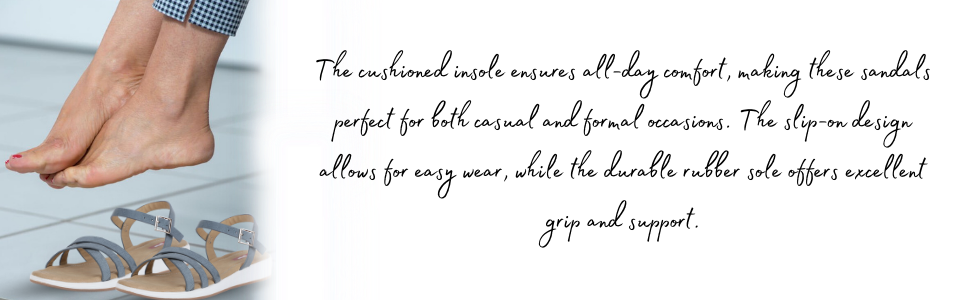 The cushioned insole ensures all-day comfort, making these sandals
perfect for both casual and formal occasions. The slip-on design
allows for easy wear, while the durable rubber sole offers excellent
grip and support.